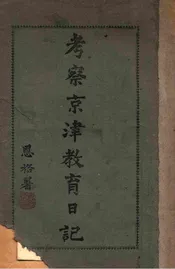 考察京津教育日記
恩裕署